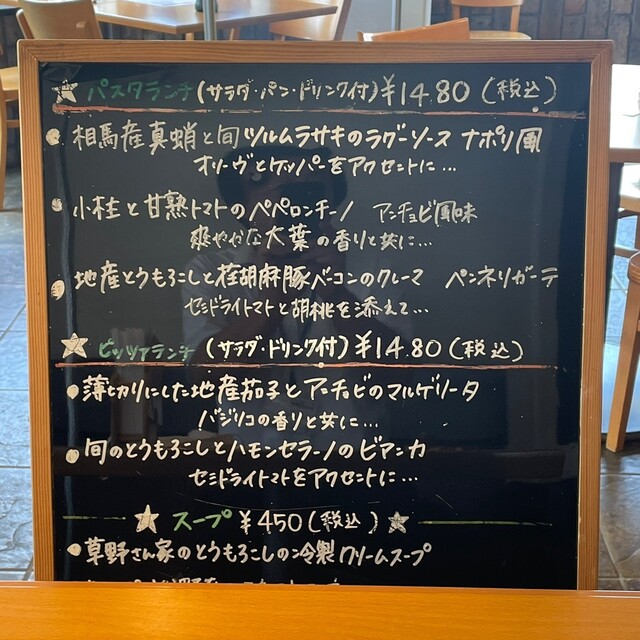 ☆ パスタランチ(サラダ・パン・ドリンク付)¥1480(税込)
• 相馬産真蛸と旬ツルムラサキのラグーソース ナポリ風
オリーヴとケッパーをアクセントに…
• 小柱と甘熟トマトのペペロンチーノ アンチョビ風味
爽やかな大葉の香りと共に…
• 地産とうもろこしと荏胡麻豚ベーコンのクレーマ ペンネリガーテ
セミドライトマトと胡桃を添えて…
☆ ピッツァランチ(サラダ・ドリンク付)¥1480(税込)
• 薄切りにした地産茄子とアンチョビのマルゲリータ
バジリコの香りと共に…
• 旬のとうもろこしとハモンセラーノのビアンカ
セミドライトマトをアクセントに…
☆ スープ ¥450(税込)☆
• 草野さん家のとうもろこしの冷製クリームスープ